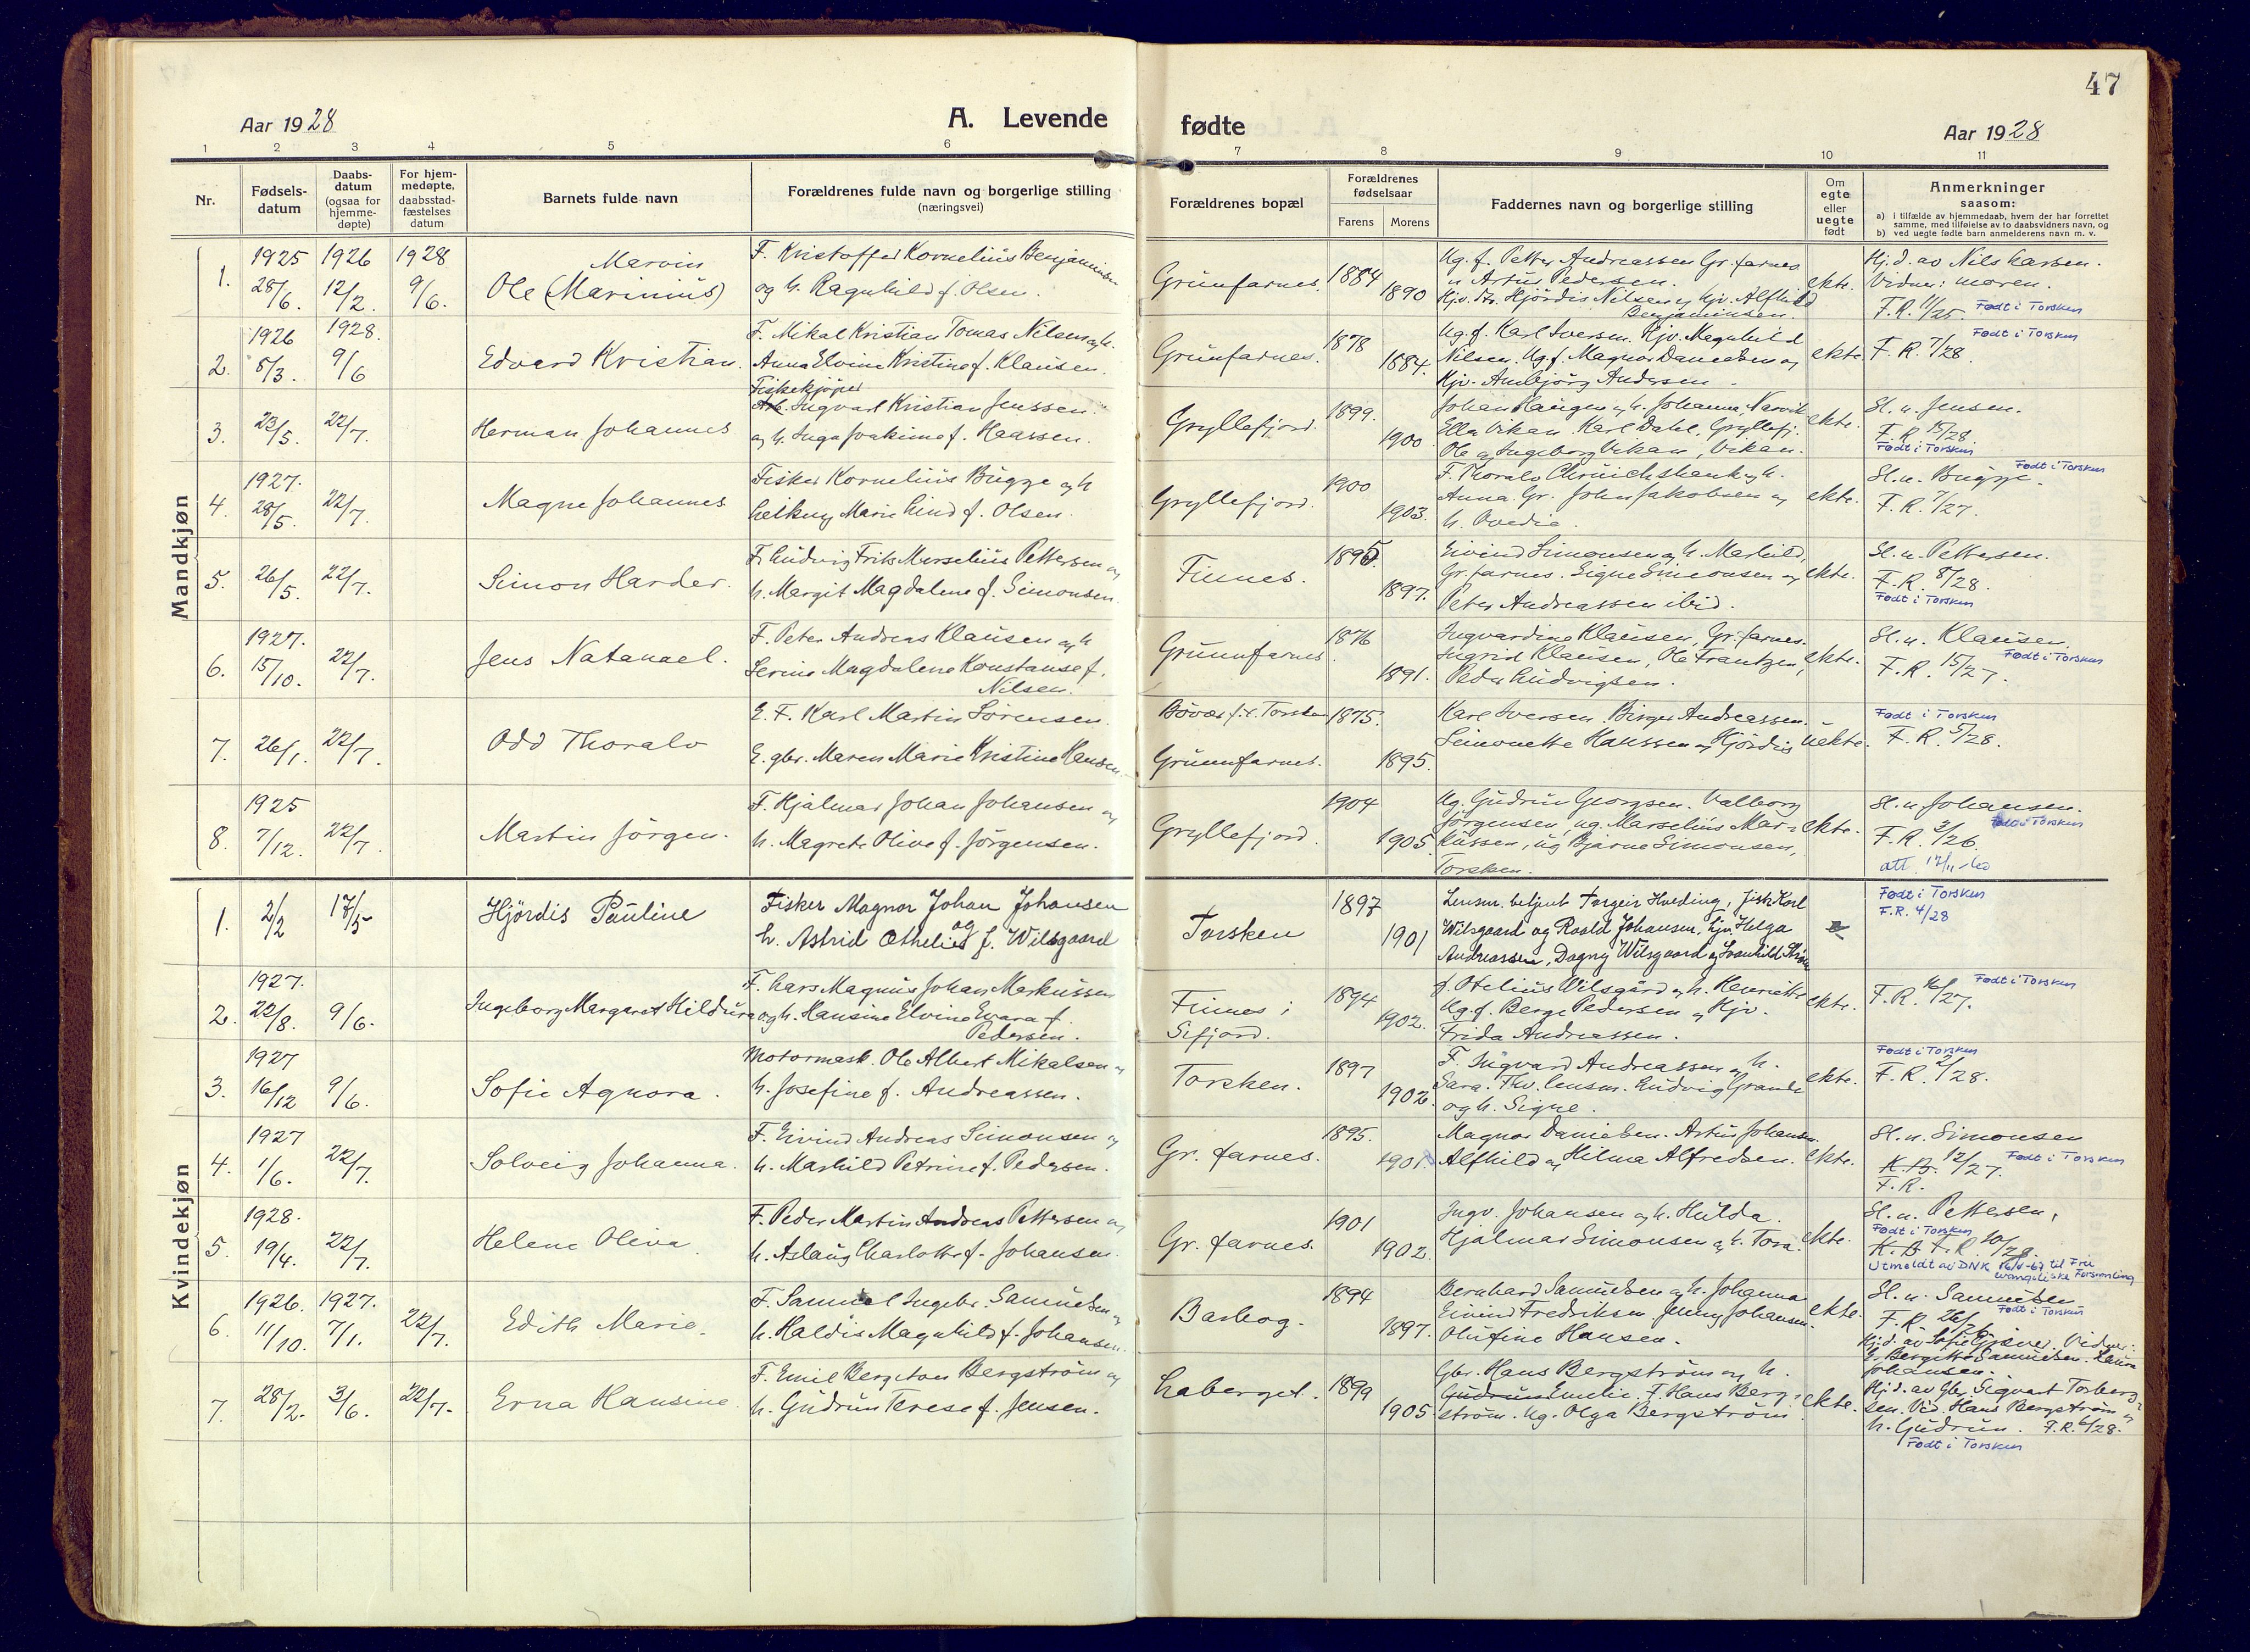 47
Aar 1928
A. Levende
fødte
Aar 1928
1 2 3 4 5 6 7 8 9 10 11
Nr.
Fødsels-
datum
Daabs-
datum
(ogsaa for
hjemme-
døpte)
For hjem-
medøpte,
daabsstad-
fæstelses
datum
Barnets fulde navn
Forældrenes fulde navn og borgerlige stilling
(næringsvei)
Forældrenes bopæl
Forældrenes
fødselsaar
Farens Morens
Faddernes navn og borgerlige stilling
Om
egte
eller
uegte
født
Anmerkninger
saasom:
a) i tilfælde av hjemmedaab, hvem der har forrettet
samme, med tilføielse av to daabsvidners navn, og
b) ved uegte fødte barn anmelderens navn m. v.
Mandkjøn
1. 1925 28/6. 1926 12/2. 1928 9/6.
Marvin
Ole (Marinius)
F. Kristoffer Kornelius Benjaminsen
og h. Ragnhild f. Olsen.
Grunfarnes. 1884 1890
Ug. f. Petter Andreassen Gr. farnes
Artur Pedersen.
Hjördis Nilsen og Hjv. Alfhild
Benjaminsen.
ekte.
Hj. d. av Nils Larsen.
Vidner: moren.
F.R. 11/25. Født i Torsken
2. 1926 8/3. 1928. 9/6
Edvard Kristian.
F. Mikal Kristian Tomas Nilsen og h.
Anna Elvine Kristine f. Klausen.
Grunfarnes. 1878 1884.
Ug. f. Karl Iversen. Hjv. Magnhild
Nilsen. Ug. f. Magnor Danielsen og
Hjv. Andersen
ekte
Født i Torsken
F.R. 7/28
3. 23/5. 22/7.
Herman Johannes
Fiskekjöper
Arb. Ingvarl Kristian Jenssen.
og h. Inga Joakime f. Haassen.
Gryllefjord. 1899. 1900
Johan Haugen og h. Johanna, Narvik
Ella Vikan. Karl Dahl, Gryllefj.
Ole og Ingeborg Vikan, Vikan.
ekte.
Sl. n. Jensen.
F.R. 15/28.
Født i Torsken
4. 1927. 28/5. 22/7.
Magne Johannes
Fisker Kornelius Bugge og h
Marie Lind f. Olsen.
Gryllefjord. 1900 1903.
F. Thoralv
Anna. Gr. John Jakobsen og
h. Ovedie.
ekte.
Født i Torsken
Sl. n. Bugge.
F.R. 7/27.
5. 26/5. 22/7.
Simon Harder.
F. Ludvig Frits Marselius Pettersen og
h. Margit Magdalene f. Simonsen.
Finnes. 1895. 1897.
Eivind Simonsen og h. Marhild,
Gr. farnes. Signe Simonsen og
Peter Andreassen ibid.
ekte.
Sl. n. Pettersen.
F.R. 8/28.
Født i Torsken
6. 1927. 15/10. 22/7.
Jens Natanael.
F. Peter Andreas Klausen og h
Serine Magdalene Konstanse f.
Nilsen.
Grunnfarnes 1876 1891.
Ingvardine Klausen, Gr. farnes.
Ingrid Klausen, Ole Frantzen,
Peder Ludvigsen.
ekte.
Sl. n. Klausen.
Født i Torsken
F.R. 15/27.
7. 26/1. 22/7.
Odd Thoralv
E. F. Karl Martin Sörensen.
E. gbr. Maren Marie Kristine Hansen.
Bövær f. v. Torsken 1875.
Grunnfarnes. 1895.
Karl Iversen. Birger Andreassen.
Simonette Hanssen og Hjördis
uekte.
Født i Torsken
F.R. 5/28.
8. 1925 7/12. 22/7.
Martin Jörgen.
F. Hjalmar Johan Johansen og
h. Magrete Olive f. Jörgensen.
Gryllefjord. 1904 1905.
Ug. Gudrun Georgsen. Valborg
Jörgensen, ug. Marselius Mar-
kussen, ug Bjarne Simonsen,
Torsken.
ekte.
Sl. n. Johansen.
Født i Torsken
F.R. 2/26.
att. 17/11
Kvindekjøn
1. 2/2 17/5
Hjördis Pauline
Fisker Magnor Johan Johansen
og
h. Astrid Othelie f. Wilsgaard
Torsken 1897 1901
Lensm. betjent Torgeir Hveding, fisk Karl
Wilsgaard og Roald Johansen, hjv. Helga
Andreassen, Dagny Wilsgaard og Svanhild
e
Født i Torsken
F.R. 4/28
2. 1927. 22/8. 9/6.
Ingeborg Margaret Hildur
F. Lars Magnus Johan Markussen
og h. Hansine Elvine Evara f.
Pedersen.
Finnes i
Sifjord. 1894 1902.
f. Otelius Wilsgård og h. Henriette
Ug. f. Berge Pedersen og Hjv.
Frida Andreassen.
ekte.
Født i Torsken
F.R. 16/27.
3. 1927 16/12 9/6.
Sofie Agnora.
Motormask. Ole Albert Mikalsen og
h. Josefine f. Andreassen.
Torsken. 1897 1902.
F. Ingvard Andreassen og h.
Sara. Fhv. lensm. Ludvig Grande
og h. Signe.
ekte.
Født i Torsken
F.R. 2/28.
4. 1927 1/6. 22/7.
Solveig Johanna.
F. Eivind Andreas Simonsen og
h. Marhild Petrine f. Pedersen.
Gr. farnes. 1895. 1901.
Magnor Danielsen. Artur Johansen.
Alfhild og Hilma Alfredsen.
ekte.
Sl. n. Simonsen
K.B. 12/27. Født i Torsken
F.R.
5. 1928. 19/4. 22/7.
Helene Oliva
F. Peder Martin Andreas Pettersen og
h. Aslaug Charlotte f. Johansen.
Gr. farnes. 1901 1902.
Ingv. Johansen og h. Hulda.
Hjalmar Simonsen og h. Tora.
ekte.
Sl. n. Pettersen,
Født i Torsken
K.B F.R. 10/28.
Utmeldt av DNK 16/1-67 til Frie
evangeliske Forsamling
6. 1926. 11/10. 1927. 7/1. 22/7.
Edith Marie.
F. Samuel Ingebr. Samuelsen og
h. Haldis Magnhild f. Johansen.
Barbog. 1894 1897.
Bernhard Samuelsen og h. Johanna
Eivind Fredriksen Jenny Johansen.
Olufine Hansen.
ekte.
Sl. n. Samuelsen
Født i Torsken
F.R. 26/26
Hj. d. av Sofie Gjæver. Vidner:
E. Bergitte Samuelsen.
Johansen.
7. 28/2. 3/6. 22/7.
Erna Hansine.
F. Emil Bergiton Bergström og
h. Gudrun Terese f. Jensen.
Laberget. 1899 1905.
Gbr. Hans Bergström og h.
Gudrun Emelie. F. Hans Berg-
ström. Ug. Olga Bergström
ekte.
Hj. d. av Gbr. Sigvart Torberg-
sen. Vid. Hans Bergström og
h. Gudrun. F.R. 6/28.
Født i Torsken